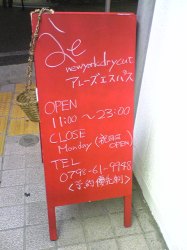 newyorkdrycut
アレーズエスパス
OPEN
11:00〜23:00
CLOSE
Monday (祝祭日
OPEN)
TEL
0798-61-9948
<予約優先制>